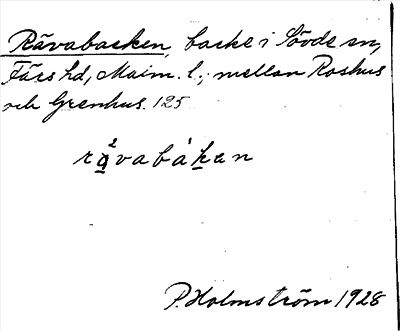 Rävabacken, backe i Sövde sn,
Färs hd, Malm. l.; mellan Roshus
och Grenhus. 125
rävabákan
P. Holmström 1928